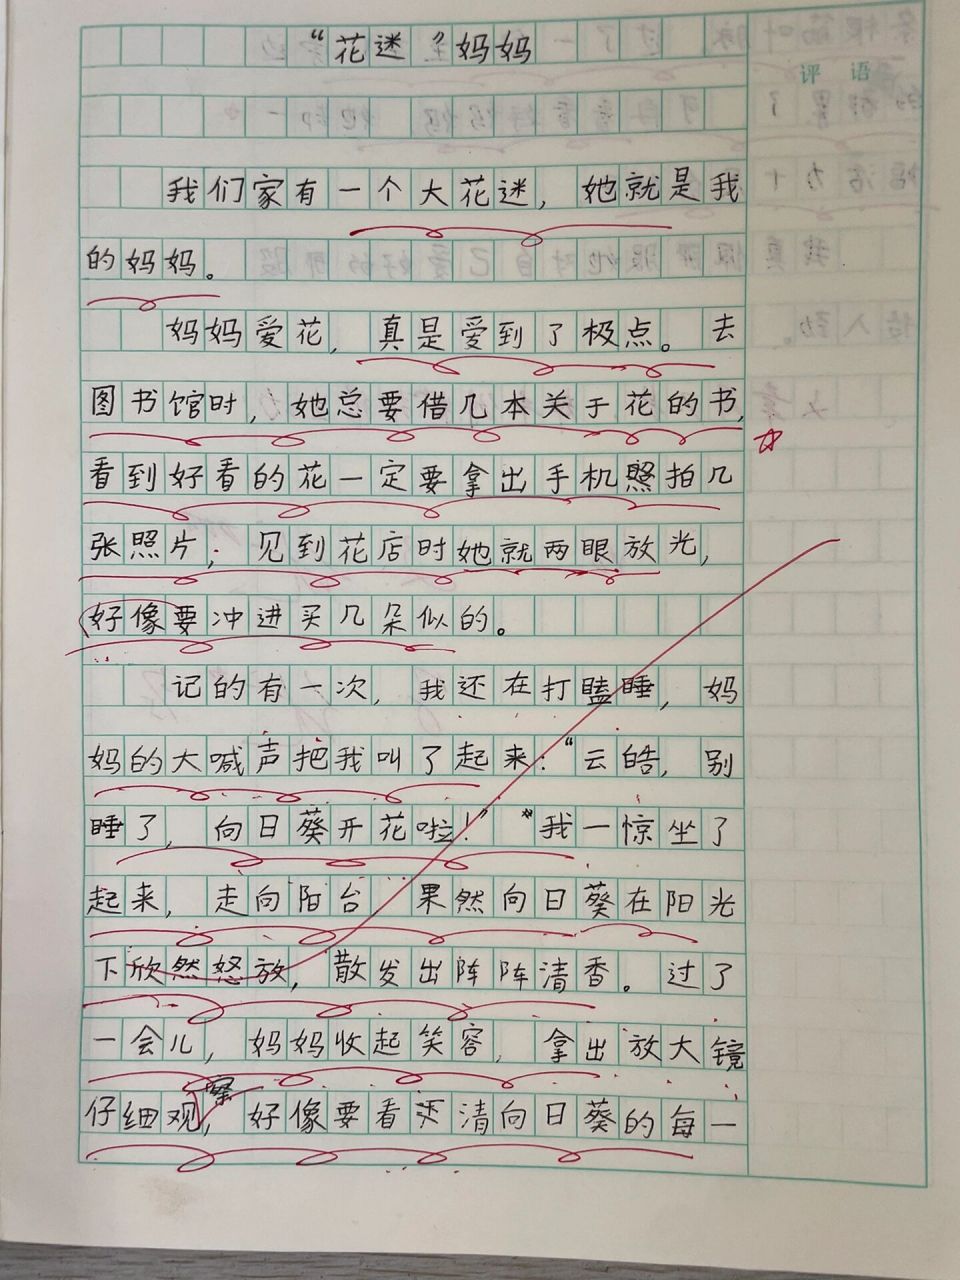 “花迷”妈妈
评语
我们家有一个大花迷，她就是我
的妈妈。
妈妈爱花，真是爱到了极点。去
图书馆时，她总要借几本关于花的书，
看到好看的花一定要拿出手机照拍几
张照片；见到花店时她就两眼放光，
好像要冲进买几朵似的。
记的有一次，我还在打瞌睡，妈
妈的大喊声把我叫了起来：“云皓，别
睡了，向日葵开花啦！”“我一惊坐了
起来，走向阳台 果然向日葵在阳光
下欣然怒放，散发出阵阵清香。过了
一会儿，妈妈收起笑容，拿出放大镜
仔细观察，好像要看清向日葵的每一